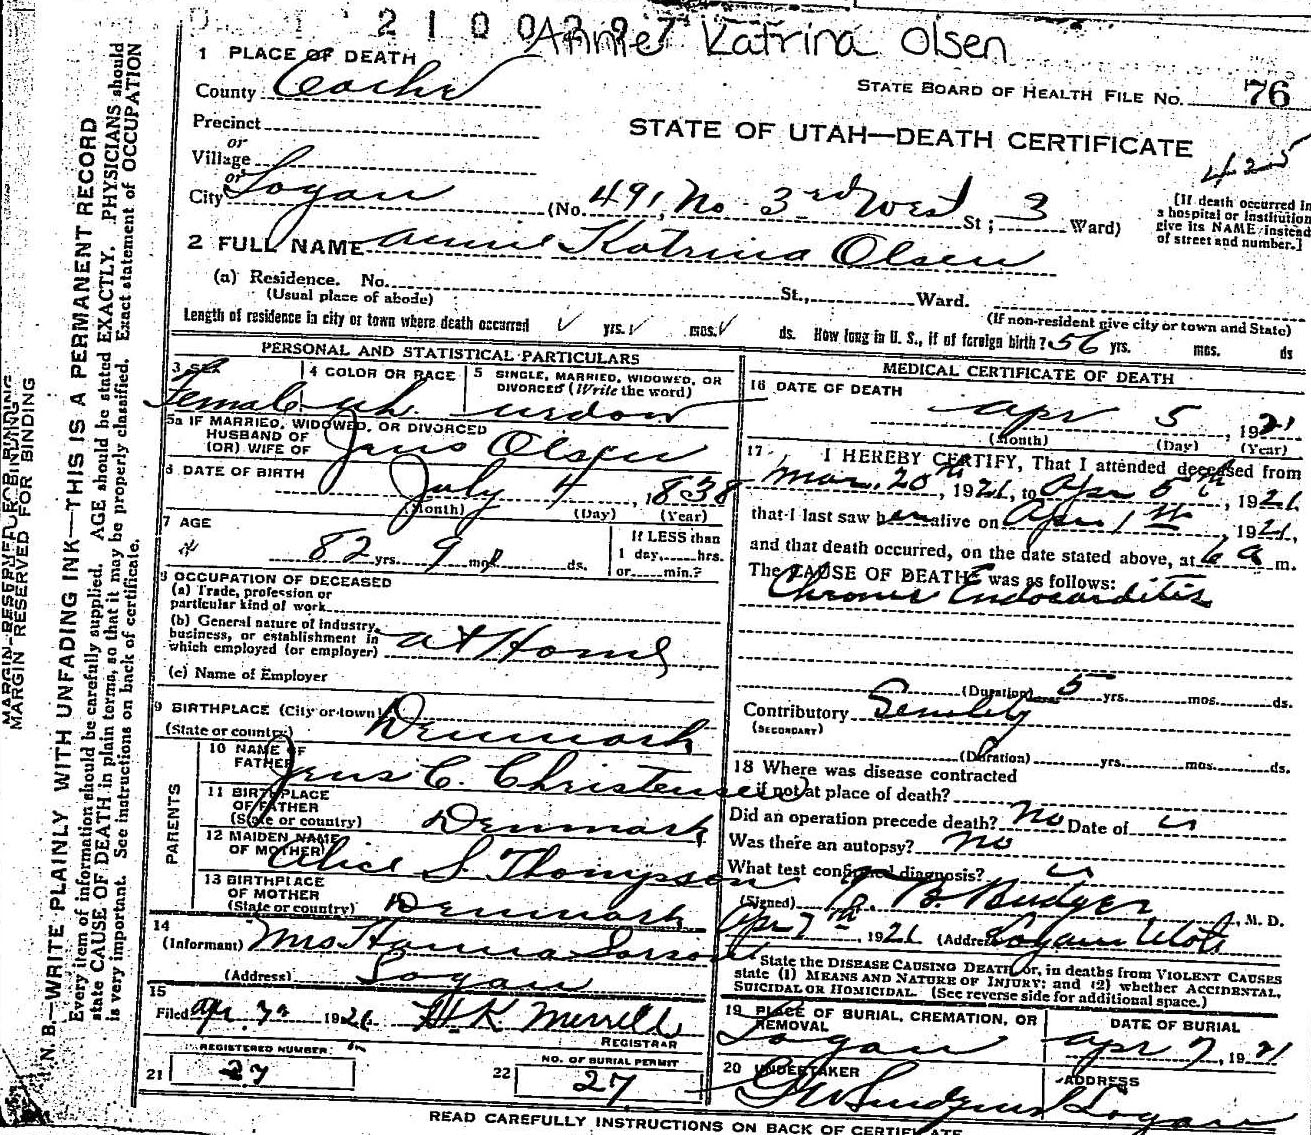 2100397 Annie Katrina Olsen
1 PLACE OF DEATH
County Cache
STATE BOARD OF HEALTH FILE NO. 76
Precinct
STATE OF UTAH—DEATH CERTIFICATE
or
Village
425
or
City Logan (No. 491, No 3rd West St; 3 Ward)
[If death occurred in
a hospital or institution
give its NAME instead
of street and number.]
2 FULL NAME Annie Katrina Olsen
(a) Residence. No. St., Ward.
(Usual place of abode)
(If non-resident give city or town and State)
Length of residence in city or town where death occurred yrs. mos. ds. How long in U. S., if of foreign birth? 56 yrs. mos. ds
PERSONAL AND STATISTICAL PARTICULARS
3 SEX
Female
4 COLOR OR RACE
wh
5 SINGLE, MARRIED, WIDOWED, OR
DIVORCED (Write the word)
widow
5a IF MARRIED, WIDOWED, OR DIVORCED
HUSBAND OF
(OR) WIFE OF Jens Olsen
6 DATE OF BIRTH
July 4, 1838
(Month) (Day) (Year)
7 AGE
82 yrs. 9 mos. ds.
If LESS than
1 day, hrs.
or min.?
8 OCCUPATION OF DECEASED
(a) Trade, profession or
particular kind of work
(b) General nature of industry,
business, or establishment in
which employed (or employer) at Home
(c) Name of Employer
9 BIRTHPLACE (City or town)
(State or country) Denmark
PARENTS
10 NAME OF
FATHER Jens C. Christensen
11 BIRTHPLACE
OF FATHER
(State or country) Denmark
12 MAIDEN NAME
OF MOTHER Alice S. Thompson
13 BIRTHPLACE
OF MOTHER
(State or country) Denmark
14
(Informant) Mrs Hanna
(Address) Logan
15
Filed Apr. 7th 1921 H. K. Merrell
REGISTRAR
REGISTERED NUMBER
21 27
NO. OF BURIAL PERMIT
22 27
MEDICAL CERTIFICATE OF DEATH
16 DATE OF DEATH
Apr 5, 1921
(Month) (Day) (Year)
17 I HEREBY CERTIFY, That I attended deceased from
Mar. 20th, 1921, to Apr 5th, 1921
that I last saw her alive on Apr 1st 1921,
and that death occurred, on the date stated above, at 6 a m.
The CAUSE OF DEATH was as follows:
Chronic Endocarditis
(Duration) 5 yrs. mos. ds.
Contributory Senility
(SECONDARY)
(Duration) yrs. mos. ds.
18 Where was disease contracted
if not at place of death?
Did an operation precede death? No Date of
Was there an autopsy? No
What test confirmed diagnosis?
(Signed) B. Budge, M. D.
Apr 7th, 1921 (Address) Logan Utah
State the DISEASE CAUSING DEATH, or, in deaths from VIOLENT CAUSES
state (1) MEANS AND NATURE OF INJURY; and (2) whether ACCIDENTAL,
SUICIDAL OR HOMICIDAL. (See reverse side for additional space.)
19 PLACE OF BURIAL, CREMATION, OR
REMOVAL
Logan
DATE OF BURIAL
Apr 7, 1921
20 UNDERTAKER
ADDRESS
Logan
READ CAREFULLY INSTRUCTIONS ON BACK OF CERTIFICATE
MARGIN RESERVED FOR BINDING
N. B.—WRITE PLAINLY WITH UNFADING INK—THIS IS A PERMANENT RECORD
Every item of information should be carefully supplied. AGE should be stated EXACTLY. PHYSICIANS should
state CAUSE OF DEATH in plain terms, so that it may be properly classified. Exact statement of OCCUPATION
is very important. See instructions on back of certificate.